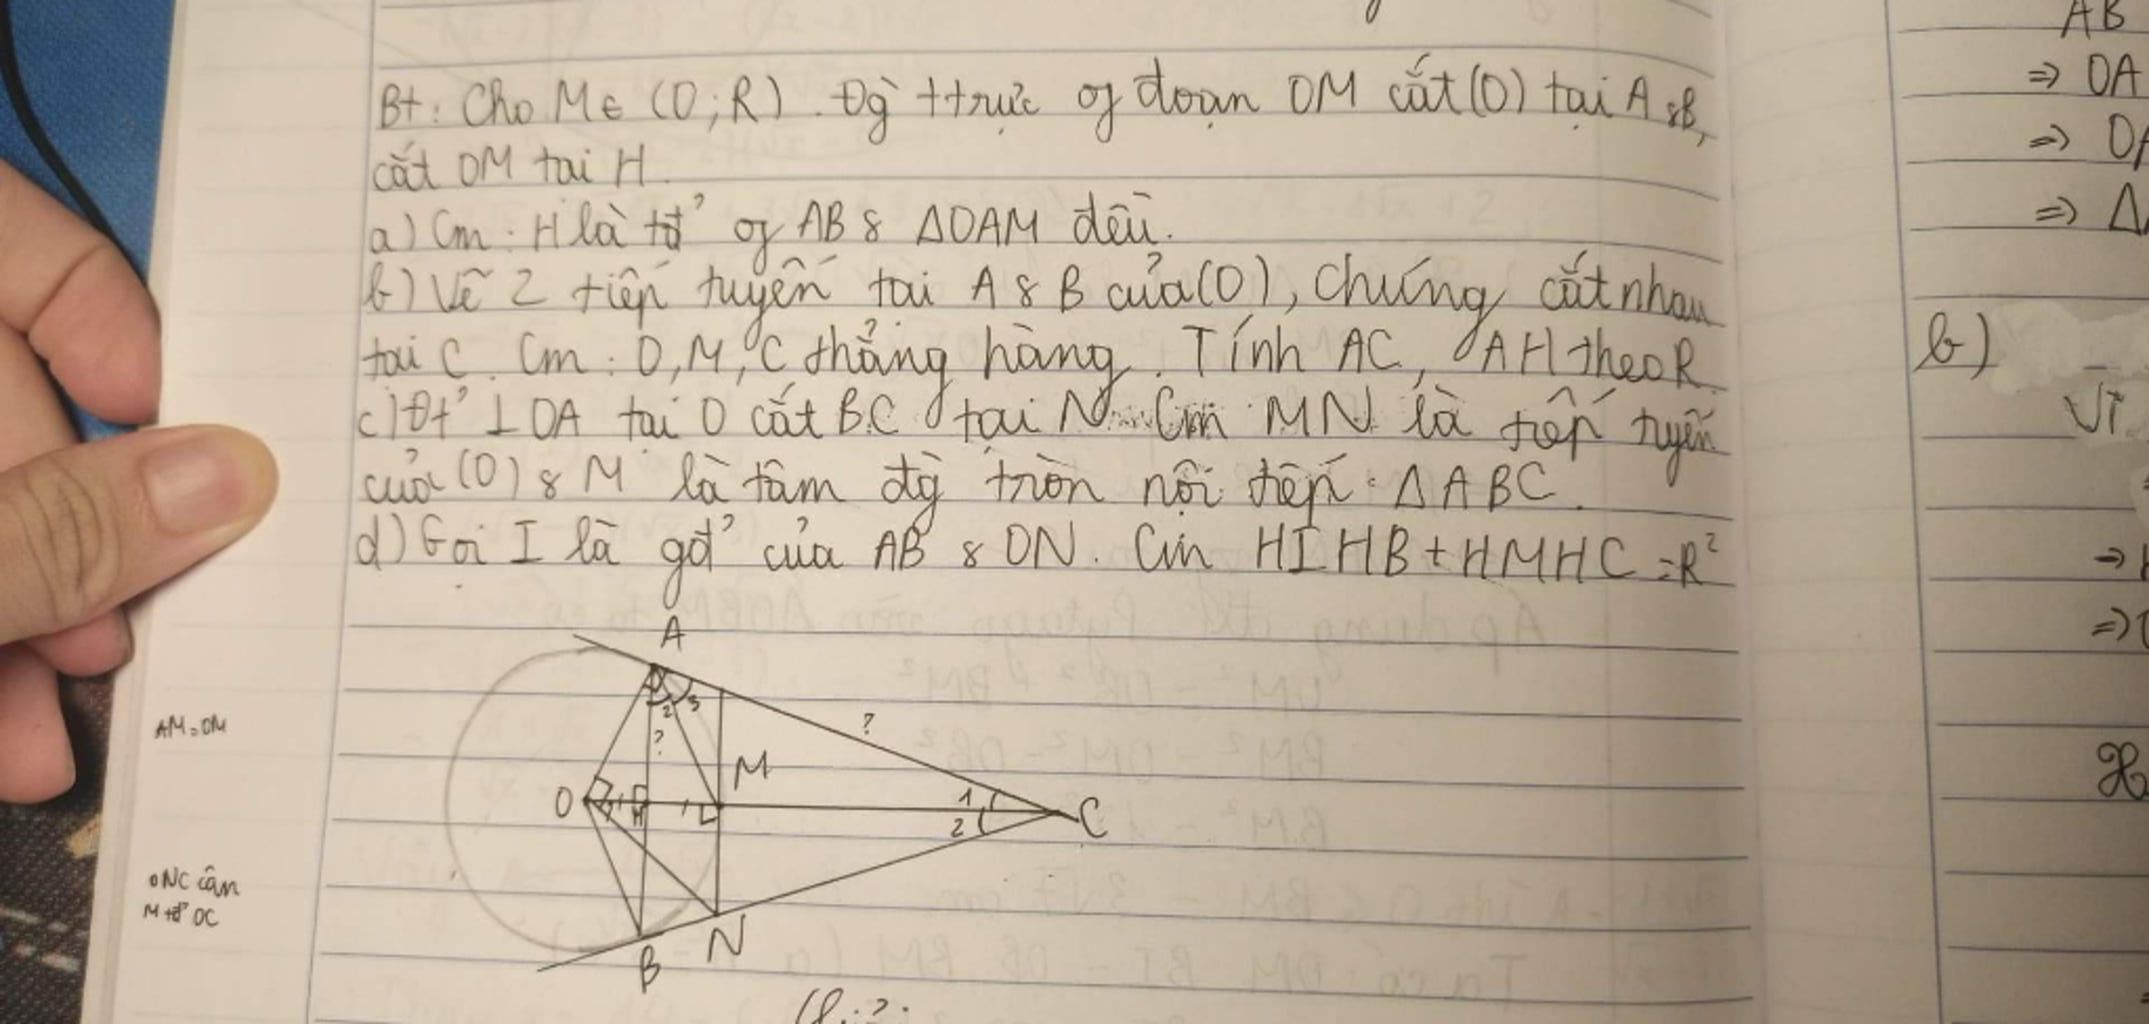 Bt: Cho M ∈ (O; R). Đg ttrực of đoạn OM cắt (O) tại A & B,
cắt OM tại H.
a) Cm: H là tđ' of AB & ΔOAM đều.
b) Vẽ 2 tiếp tuyến tại A & B của (O), chúng cắt nhau
tại C. Cm: O, M, C thẳng hàng. Tính AC, AH theo R.
c) Đt' ⊥ OA tại O cắt BC tại N. Cm MN là tiếp tuyến
của (O) & M là tâm đg tròn nội tiếp ΔABC.
d) Gọi I là gđ' của AB & ON. Cm HI HB + HM HC = R²
A
2 3
?
?
AM = OM
O
H
M
1
2
C
ONC cân
M tđ' OC
B
N
AB
⇒ OA
⇒
⇒ Δ
b)
⇒
⇒